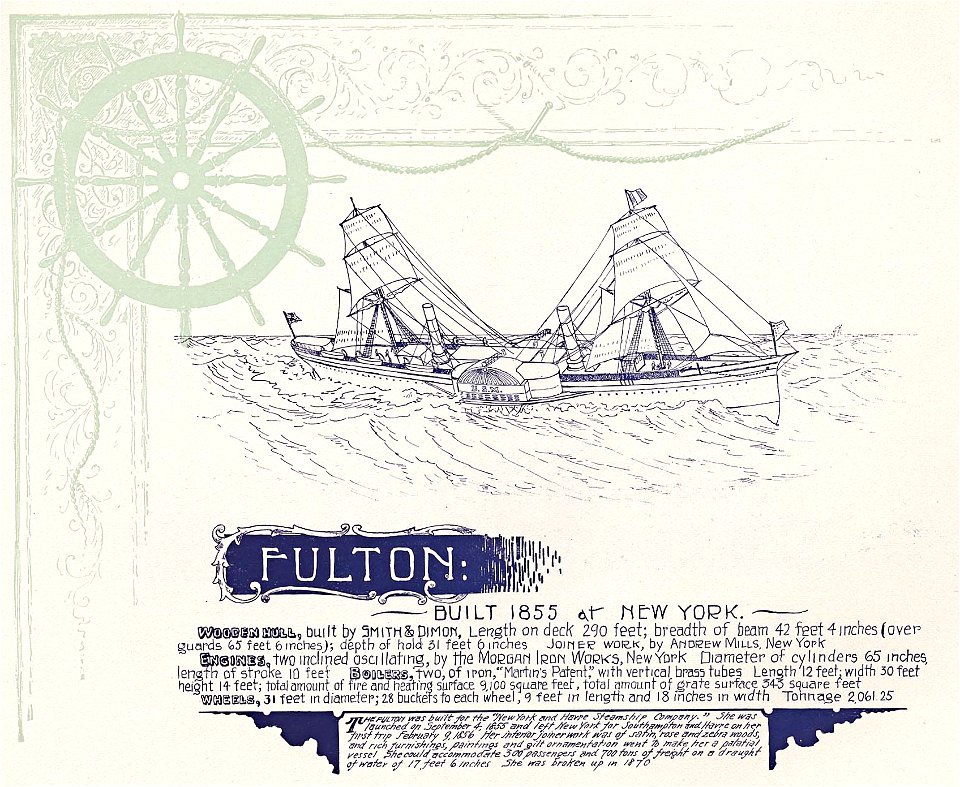 U.S.M.
FULTON:
BUILT 1855 at NEW YORK.
WOODEN HULL, built by SMITH & DIMON, Length on deck 290 feet; breadth of beam 42 feet 4 inches (over
guards 65 feet 6 inches); depth of hold 31 feet 6 inches JOINER WORK, by ANDREW MILLS, New York
ENGINES, two inclined oscillating, by the MORGAN IRON WORKS, New York Diameter of cylinders 65 inches,
length of stroke 10 feet BOILERS, two, of iron, "Martin's Patent," with vertical brass tubes Length 12 feet; width 30 feet
height 14 feet; total amount of fire and heating surface 9,100 square feet, total amount of grate surface 343 square feet
WHEELS, 31 feet in diameter; 28 buckets to each wheel, 9 feet in length and 18 inches in width Tonnage 2,061.25
THE FULTON was built for the "New York and Havre Steamship Company." She was
launched on September 4, 1855 and left New York for Southampton and Havre on her
first trip February 9, 1856 Her interior joiner work was of satin, rose and zebra woods,
and rich furnishings, paintings and gilt ornamentation went to make her a palatial
vessel She could accommodate 300 passengers and 700 tons of freight on a draught
of water of 17 feet 6 inches She was broken up in 1870